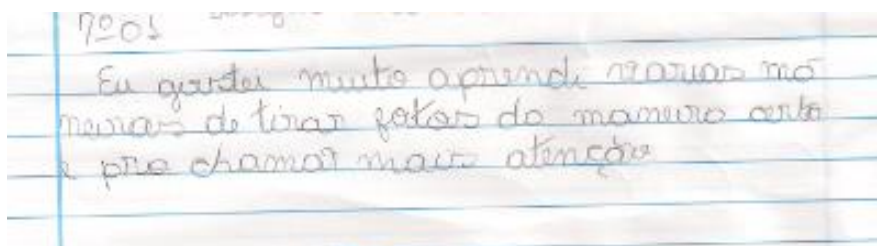 7º 01
Eu gostei muito aprendi varias ma
neiras de tirar fotos da maneira certa
e pra chamar mais atenção